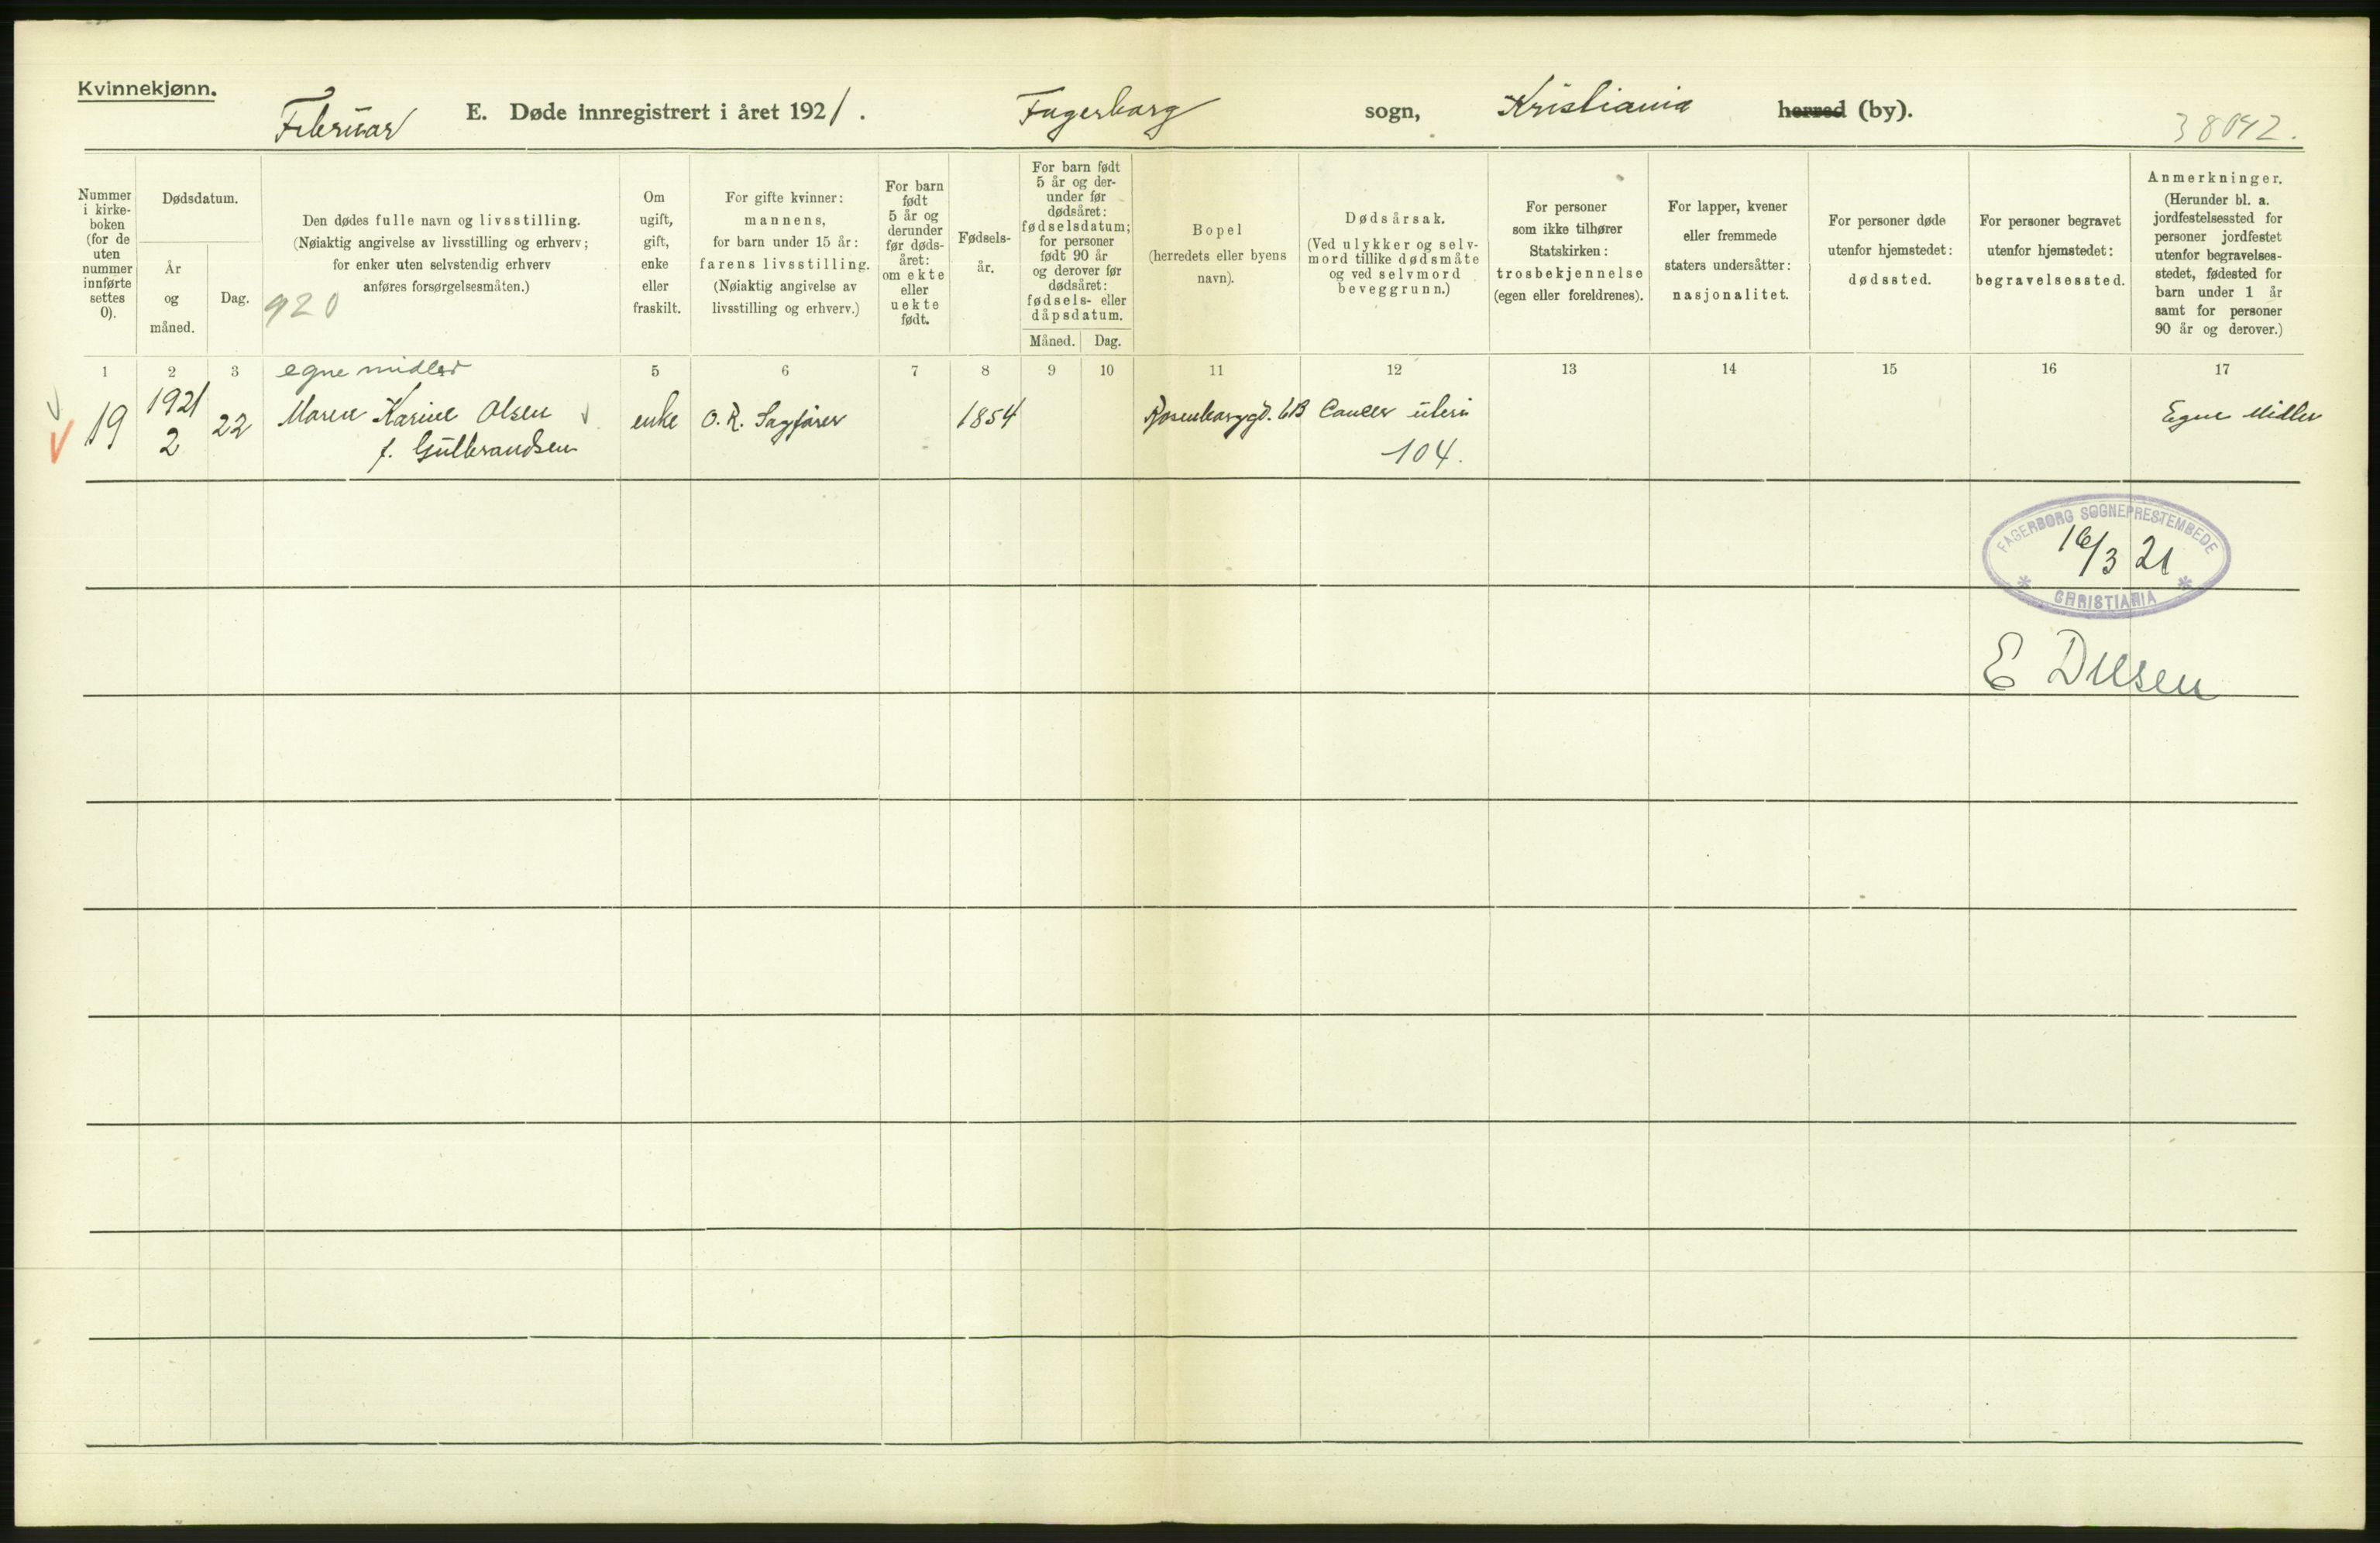 Kvinnekjønn.
Februar E. Døde innregistrert i året 1921. Fagerborg sogn, Kristiania herred (by).
38042.
Nummer i kirke-boken (for de uten nummer innførte settes 0).
Dødsdatum.
År og måned.
Dag.
Den dødes fulle navn og livsstilling.
(Nøiaktig angivelse av livsstilling og erhverv;
for enker uten selvstendig erhverv
anføres forsørgelsesmåten.)
920
Om
ugift,
gift,
enke
eller
fraskilt.
For gifte kvinner:
mannens,
for barn under 15 år:
farens livsstilling.
(Nøiaktig angivelse av
livsstilling og erhverv.)
For barn
født
5 år og
derunder
før døds-
året:
om ekte
eller
uekte
født.
Fødsels-
år.
For barn født
5 år og der-
under før
dødsåret:
fødselsdatum;
for personer
født 90 år
og derover før
dødsåret:
fødsels- eller
dåpsdatum.
Måned. Dag.
Bopel
(herredets eller byens
navn).
Dødsårsak.
(Ved ulykker og selv-
mord tillike dødsmåte
og ved selvmord
beveggrunn.)
For personer
som ikke tilhører
Statskirken:
trosbekjennelse
(egen eller foreldrenes).
For lapper, kvener
eller fremmede
staters undersåtter:
nasjonalitet.
For personer døde
utenfor hjemstedet:
dødssted.
For personer begravet
utenfor hjemstedet:
begravelsessted.
Anmerkninger.
(Herunder bl. a.
jordfestelsessted for
personer jordfestet
utenfor begravelses-
stedet, fødested for
barn under 1 år
samt for personer
90 år og derover.)
1 2 3 egne midler 5 6 7 8 9 10 11 12 13 14 15 16 17
19 1921 2 22 Maren Karine Olsen enke O. R. Sagfører 1854 Rosenborggt. 6B Cancer uteri Egne Midler
f. Gulbrandsen 104.
FAGERBORG SOGNEPRESTEMBEDE
16/3 21
CHRISTIANIA